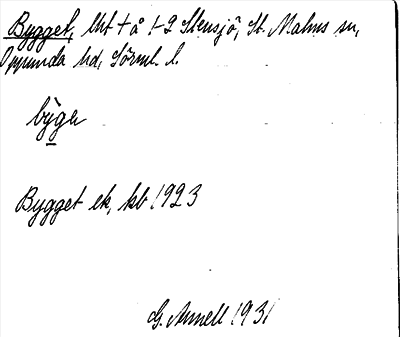 Bygget, lht † å 1-2 Stensjö, St. Malms sn,
Oppunda hd, Sörml. l.
bỳgə
Bygget ek, kb 1923
G. Annell 1931